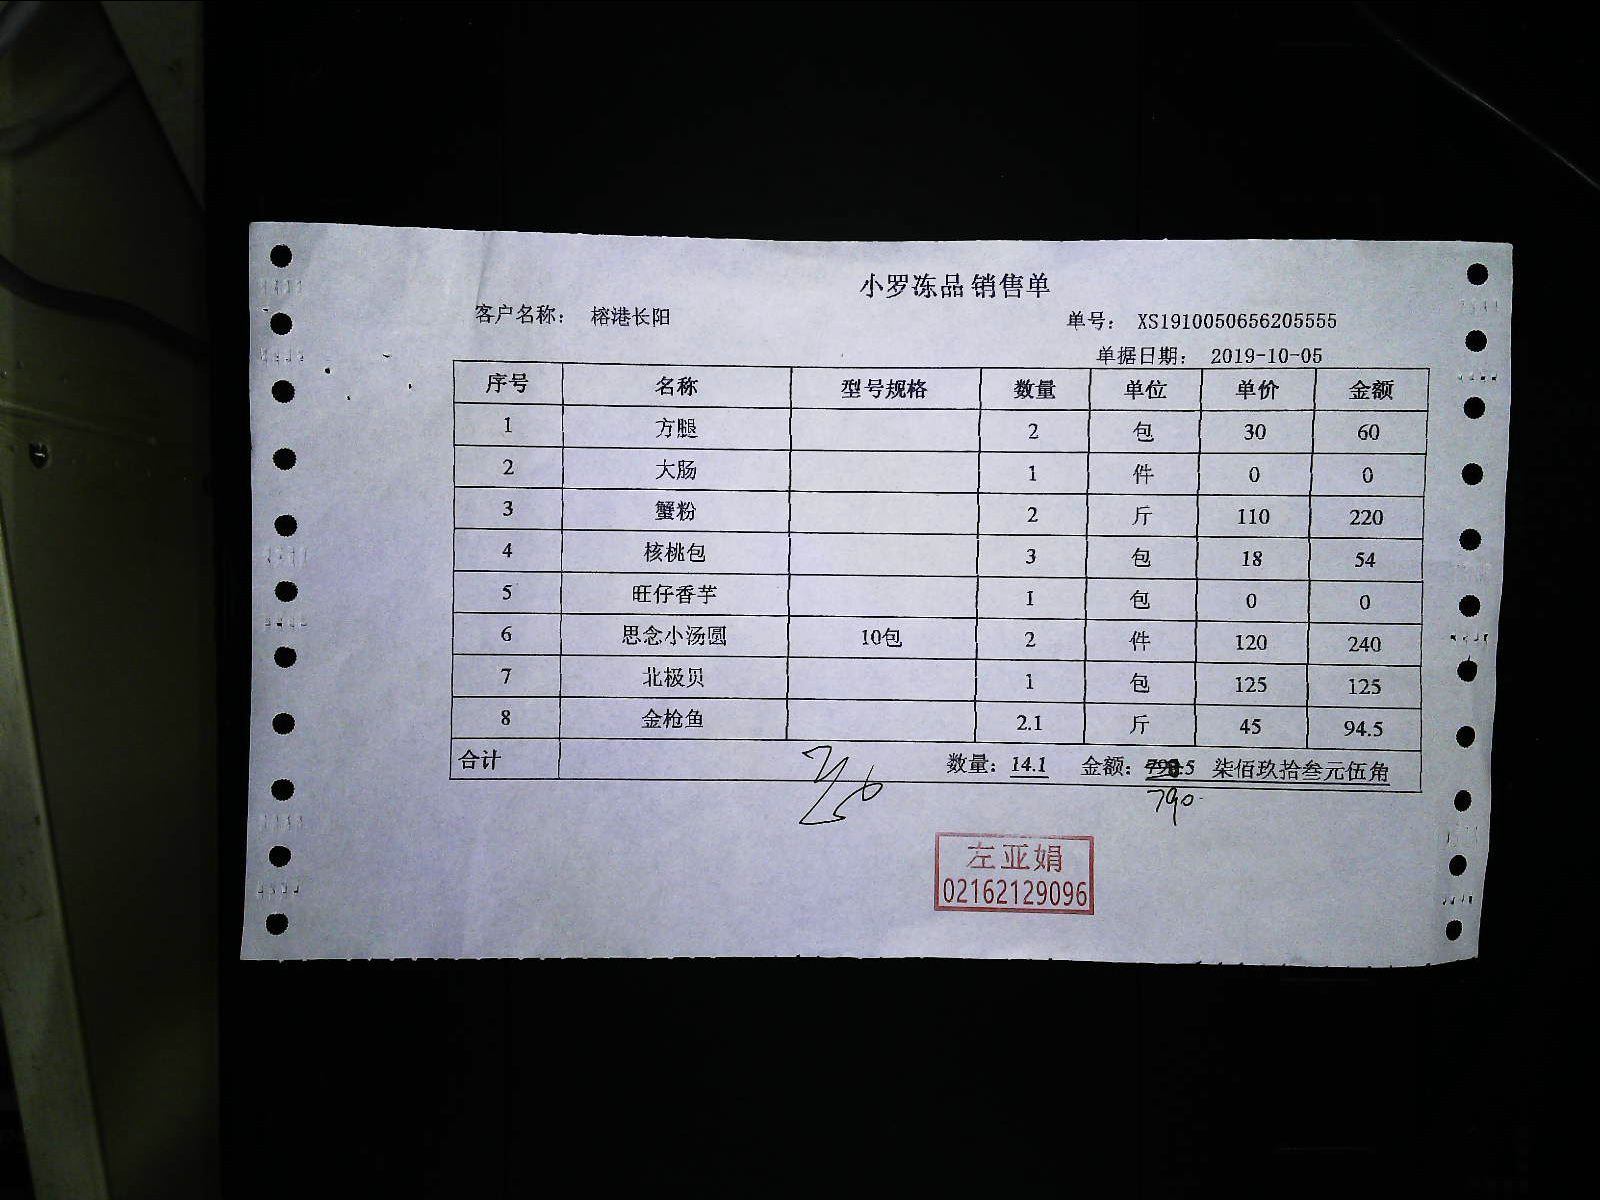 小罗冻品 销售单
客户名称： 榕港长阳
单号： XS1910050656205555
单据日期： 2019-10-05
序号 名称 型号规格 数量 单位 单价 金额
1 方腿 2 包 30 60
2 大肠 1 件 0 0
3 蟹粉 2 斤 110 220
4 核桃包 3 包 18 54
5 旺仔香芋 1 包 0 0
6 思念小汤圆 10包 2 件 120 240
7 北极贝 1 包 125 125
8 金枪鱼 2.1 斤 45 94.5
合计 数量：14.1 金额：793.5 柒佰玖拾叁元伍角
790
左亚娟
02162129096